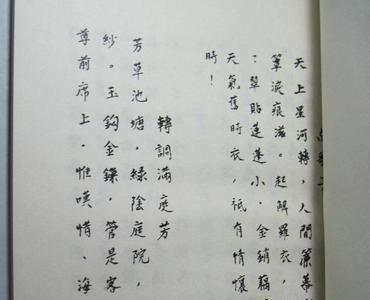 南歌子
天上星河轉，人間簾幕
簟淚痕滋。起解羅衣，
：翠貼蓮蓬小，金銷藕
天氣舊時衣，祇有情懷
時！
轉調滿庭芳
芳草池塘，綠陰庭院，
紗。玉鈎金鏁，管是客
尊前席上，惟嘆惜、海